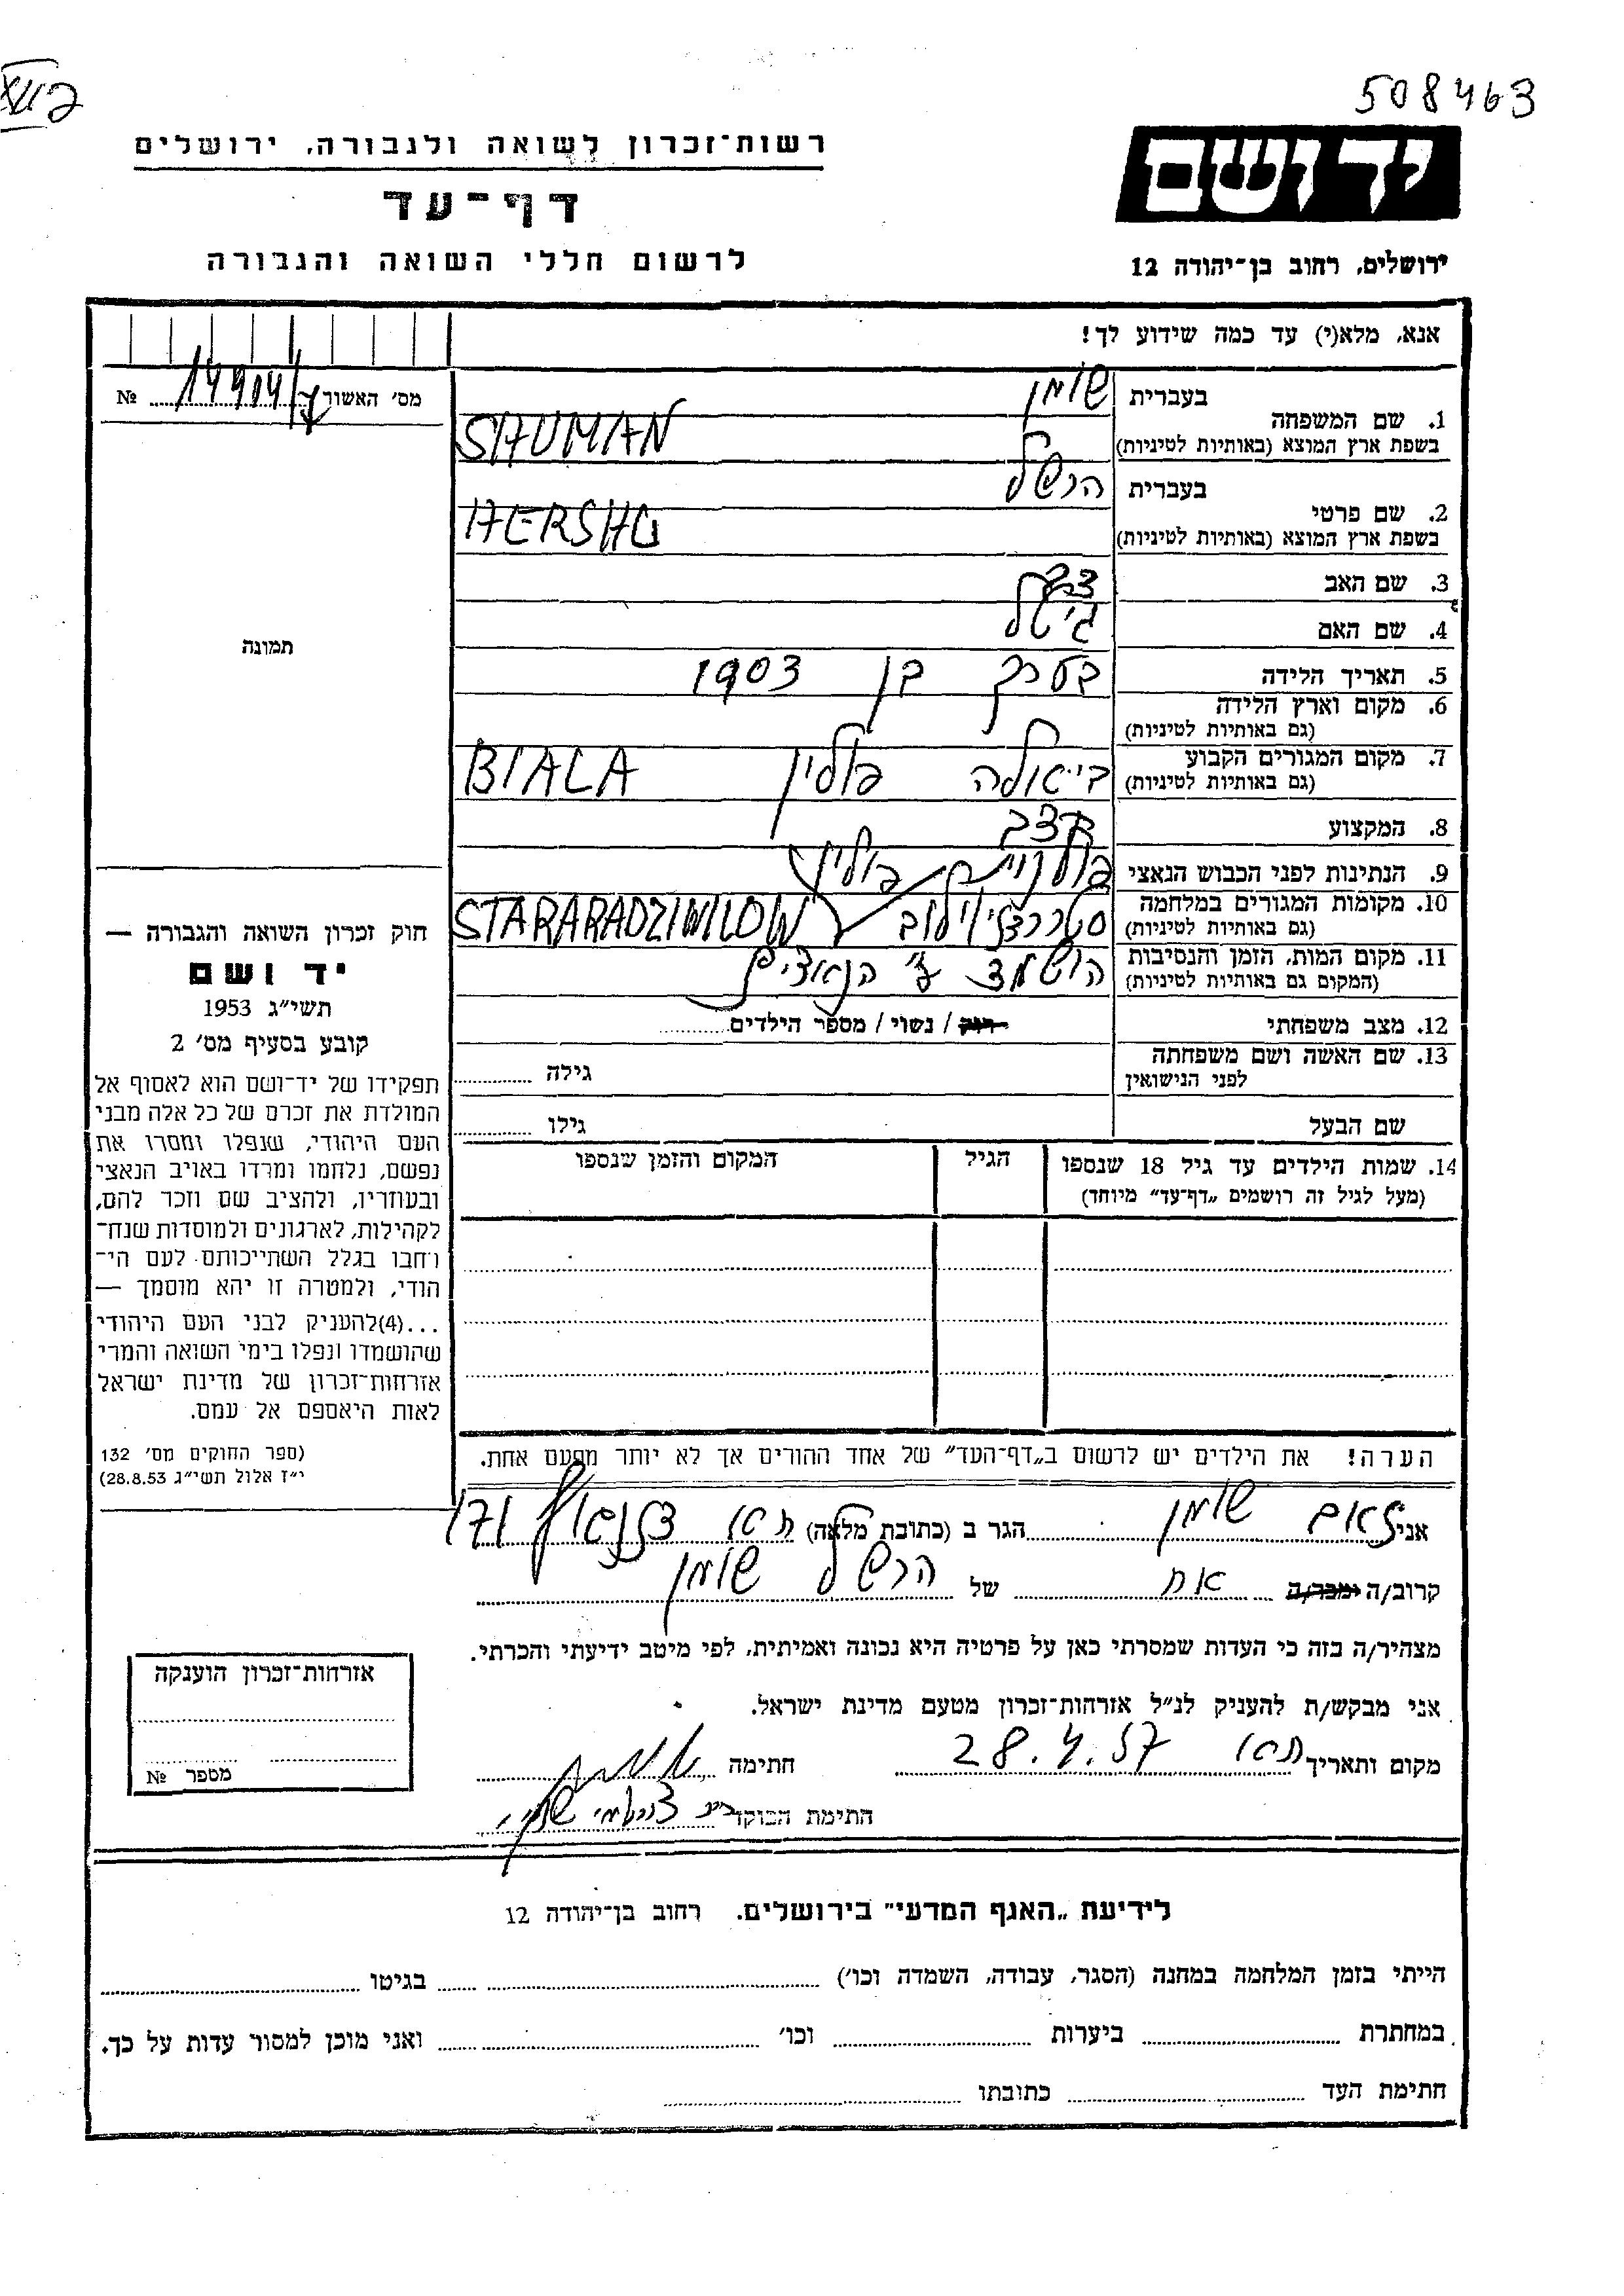 508463
יד ושם
ירושלים, רחוב בן־יהודה 12
רשות־זכרון לשואה ולגבורה, ירושלים
דף־עד
לרשום חללי השואה והגבורה
אנא, מלא(י) עד כמה שידוע לך!
מס׳ האשור № 14904
תמונה
חוק זכרון השואה והגבורה —
יד ושם
תשי״ג 1953
קובע בסעיף מס׳ 2
תפקידו של יד־ושם הוא לאסוף אל
המולדת את זכרם של כל אלה מבני
העם היהודי, שנפלו ומסרו את
נפשם, נלחמו ומרדו באויב הנאצי
ובעוזריו, ולהציב שם וזכר להם,
לקהילות, לארגונים ולמוסדות שנח־
רחבו בגלל השתייכותם לעם הי־
הודי, ולמטרה זו יהא מוסמך —
...(4)להעניק לבני העם היהודי
שהושמדו ונפלו בימי השואה והמרי
אזרחות־זכרון של מדינת ישראל
לאות היאספם אל עמם.
(ספר החוקים מס׳ 132
י״ז אלול תשי״ג 28.8.53)
בעברית שומן
1. שם המשפחה
בשפת ארץ המוצא (באותיות לטיניות) SHUMAN
בעברית הרשל
2. שם פרטי
בשפת ארץ המוצא (באותיות לטיניות) HERSHL
3. שם האב
4. שם האם גיטל
5. תאריך הלידה בערך בן 1903
6. מקום וארץ הלידה
(גם באותיות לטיניות)
7. מקום המגורים הקבוע
(גם באותיות לטיניות) ביאלה פולין BIALA
8. המקצוע קצב
9. הנתינות לפני הכבוש הנאצי פולין
10. מקומות המגורים במלחמה
(גם באותיות לטיניות) STARARADZIWILOW
11. מקום המות, הזמן והנסיבות
(המקום גם באותיות לטיניות) הושמד ע״י הנאצים
12. מצב משפחתי רווק / נשוי / מספר הילדים
13. שם האשה ושם משפחתה
לפני הנישואין גילה
שם הבעל גילו
14. שמות הילדים עד גיל 18 שנספו
(מעל לגיל זה רושמים „דף־עד״ מיוחד)
הגיל
המקום והזמן שנספו
הערה! את הילדים יש לרשום ב„דף־העד״ של אחד ההורים אך לא יותר מפעם אחת.
אני שומן הגר ב (כתובת מלאה) 171
קרוב/ה ימכר/ה אח של הרשל שומן
מצהיר/ה בזה כי העדות שמסרתי כאן על פרטיה היא נכונה ואמיתית, לפי מיטב ידיעתי והכרתי.
אני מבקש/ת להעניק לנ״ל אזרחות־זכרון מטעם מדינת ישראל.
מקום ותאריך 28.4.57 חתימה
חתימת הפוקד
אזרחות־זכרון הוענקה
מספר №
לידיעת „האגף המדעי״ בירושלים, רחוב בן־יהודה 12
הייתי בזמן המלחמה במחנה (הסגר, עבודה, השמדה וכו׳) בגיטו
במחתרת ביערות וכו׳ ואני מוכן למסור עדות על כך.
חתימת העד כתובתו